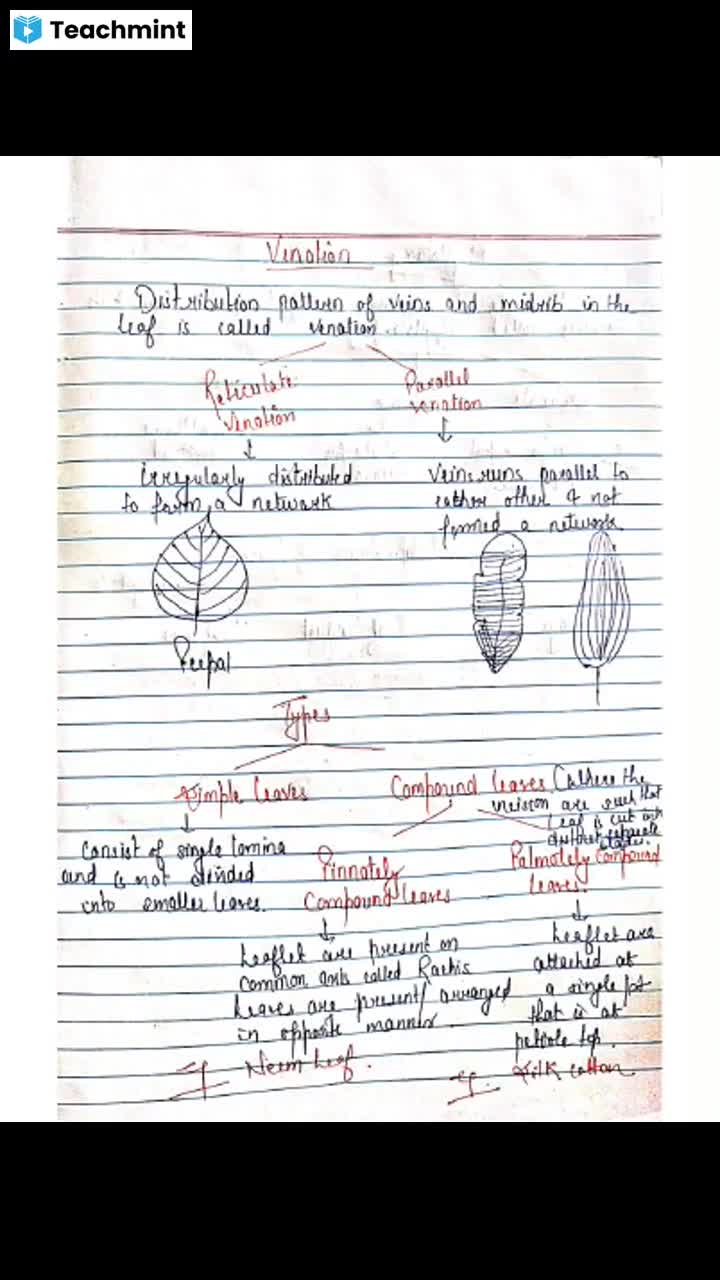 Teachmint
Venation
Distribution pattern of veins and midrib in the
leaf is called venation.
Reticulate
venation
Parallel
venation
irregularly distributed
to form a network
Veins runs parallel to
eather other & not
formed a network
Peepal
Types
Simple leaves
Compound leaves (Where the
incision are such that
leaf is cut into
distinct separate
Consist of single lamina
and is not divided
into smaller leaves.
Pinnately
Compound leaves
Palmately Compound
leaves.
Leaflet are present on
common axis called Rachis
Leaves are present/arranged
in opposite manner.
eg Neem leaf.
Leaflet are
attached at
a single pt
that is at
petiole top.
eg. Silk cotton